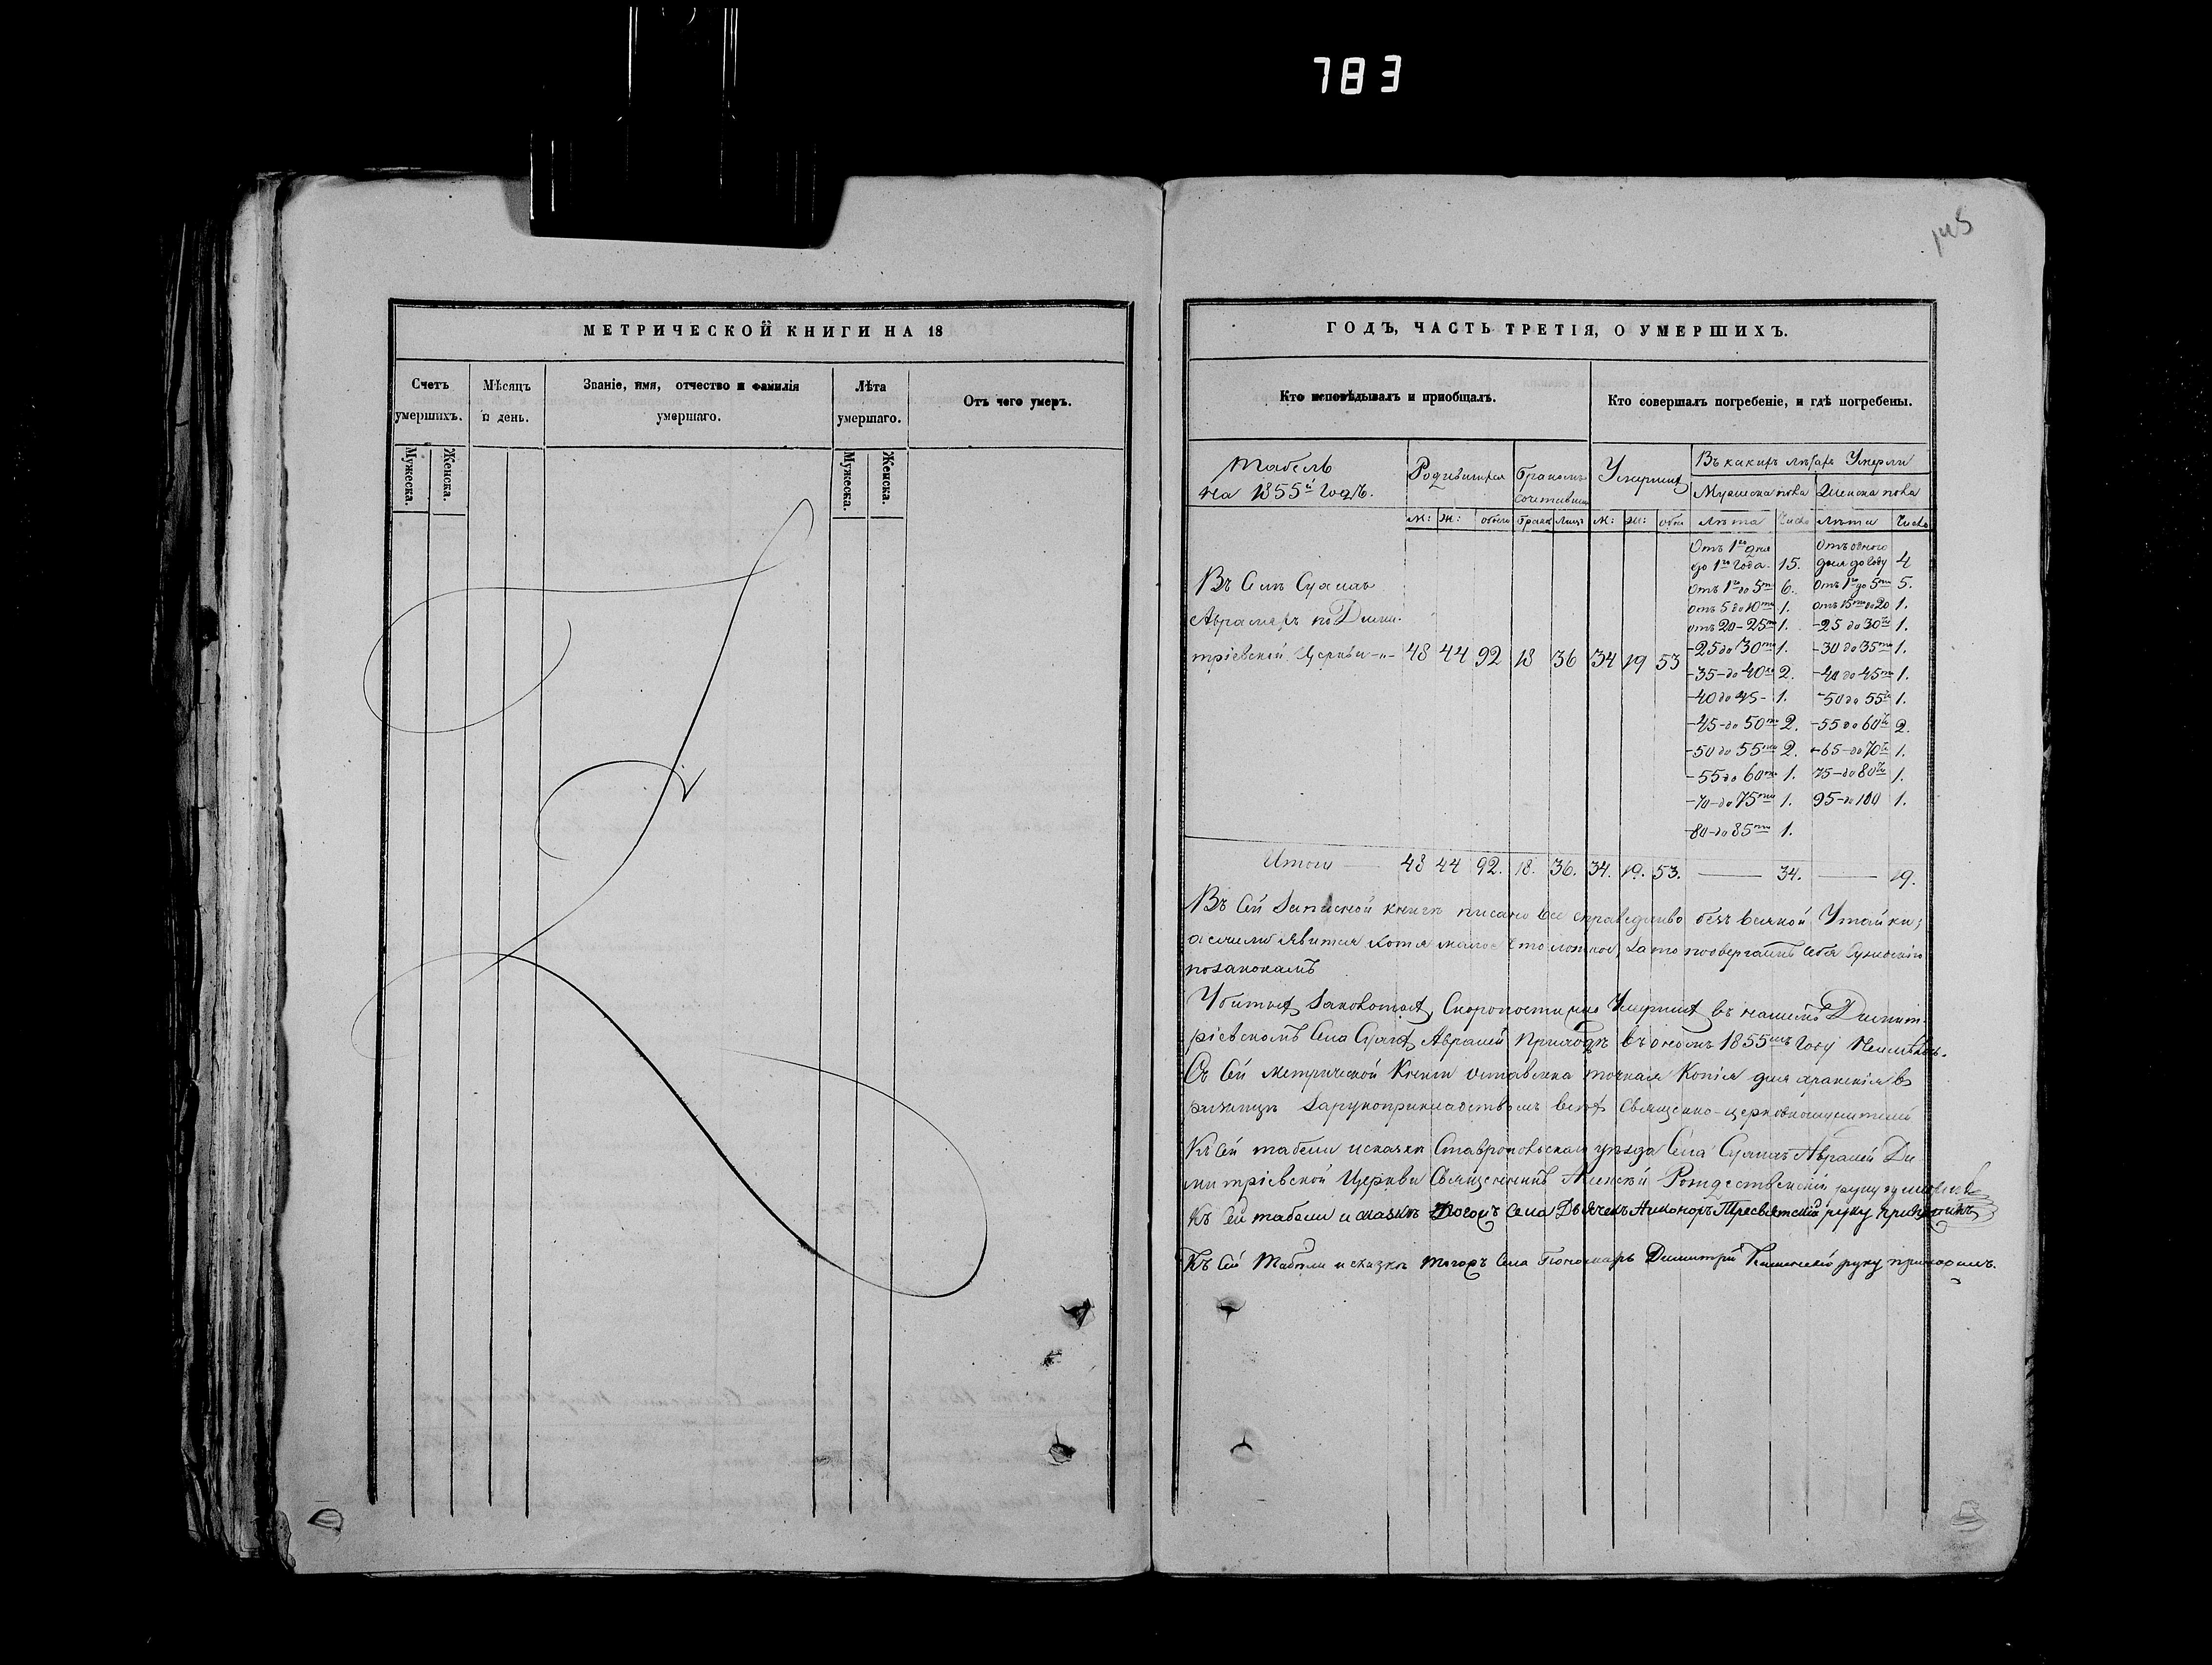 783
145
МЕТРИЧЕСКОЙ КНИГИ НА 18
Счетъ умершихъ.
Мѣсяцъ и день.
Званіе, имя, отчество и фамилія умершаго.
Лѣта умершаго.
Отъ чего умеръ.
Мужеска.
Женска.
Мужеска.
Женска.
ГОДЪ, ЧАСТЬ ТРЕТІЯ, О УМЕРШИХЪ.
Кто исповѣдывалъ и пріобщалъ.
Кто совершалъ погребеніе, и гдѣ погребены.
Табель на 1855й Годъ.
Родившихся
Бракомъ сочетавшихся
Умершихъ
Въ какихъ лѣтахъ Умерли
Мужеска пола
Женска пола
М: Ж: обоего Бракъ Лицъ М: Ж: обои Лѣта Число Лѣта Число
Отъ 1го дня до 1го Года. 15. Отъ одного дня до году 4
Отъ 1го до 5ти 6. Отъ 1го до 5ти 5.
отъ 5 до 10ти 1. отъ 15ти до 20 1.
отъ 20-25ти 1. -25 до 30ти 1.
-25 до 30ти 1. -30 до 35ти 1.
-35-до 40ка 2. -40 до 45ти 1.
-40 до 45- 1. -50 до 55ти 1.
-45-до 50ти 2. -55 до 60ти 2.
-50 до 55ти 2. -65-до 70ти 1.
-55 до 60ти 1. 75-до 80ти 1.
-70-до 75ти 1. 95-до 100 1.
-80-до 85ти 1.
Въ Селѣ
по Дими-
тріевской Церкви -"- 48 44 92 18 36 34 19 53
Итого — 48 44 92. 18. 36. 34. 19. 53. — 34. — 19.
Въ сей Записной книгѣ писано все справедливо безъ всякой Утайки;
а ежели явится хотя малое что ложное, за то подвергаемъ себя Сужденію
по законамъ
Скоропостижно Умершихъ въ нашемъ Димит-
ріевскомъ Села Приходѣ въ ономъ 1855мъ Году Неимѣлось.
Съ сей метрической Книги оставлена точная Копія для храненія въ
ризницѣ за рукоприкладствомъ всѣхъ Священно-церковнослужителей
Къ сей табели и сказки Ставропольскаго уѣзда Села Ди-
митріевской Церкви Священникъ Алексѣй Рождественскій руку приложилъ
Къ сей табели и сказкѣ Тогожъ села Дьячекъ Никоноръ Пресвятскій руку приложилъ
Къ сей Табели и сказкѣ тогожъ Села Пономарь Димитрій руку приложилъ.